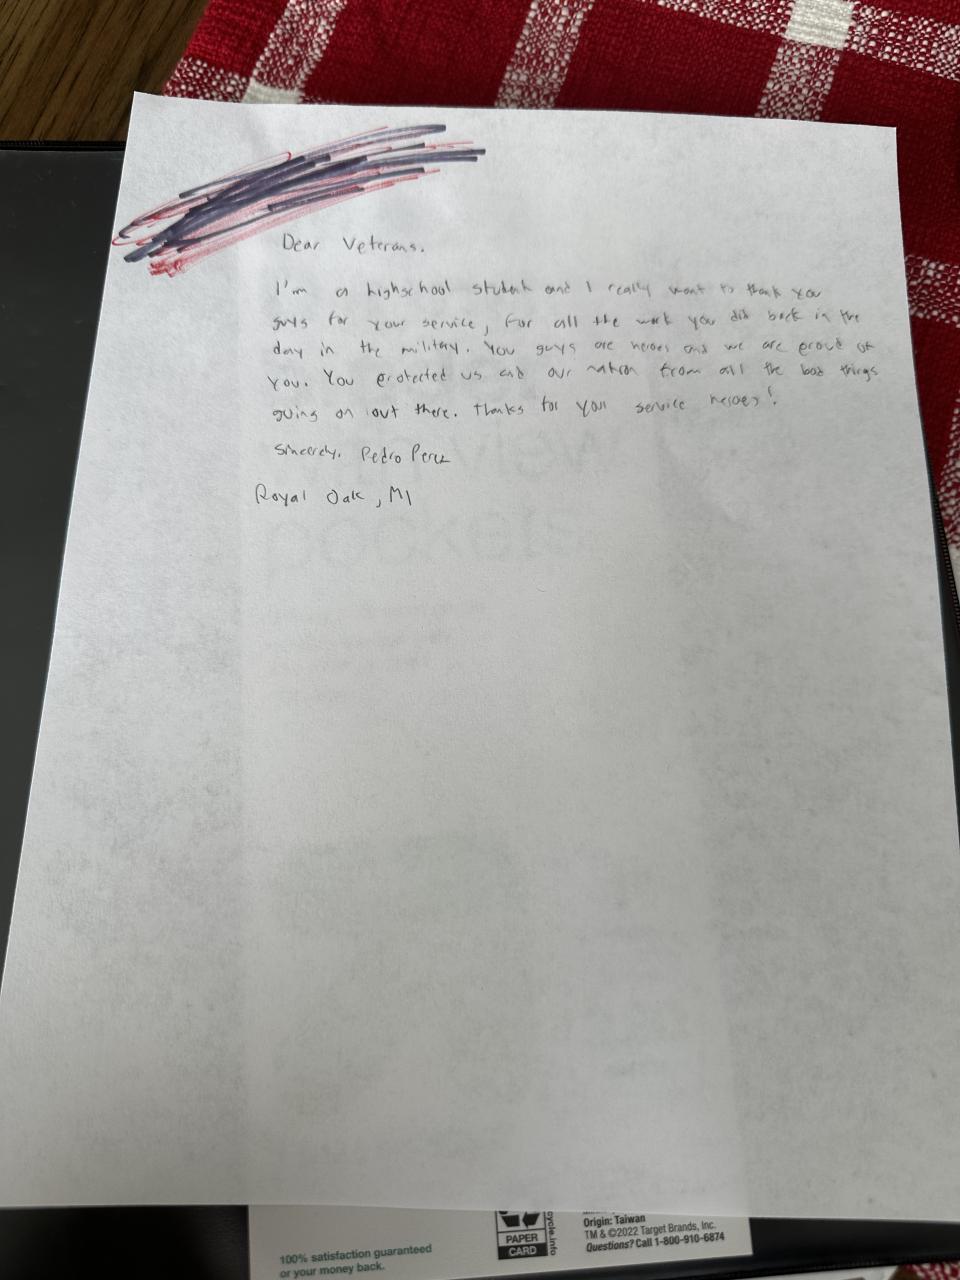 Dear Veterans.
I'm a highschool student and I really want to thank you
guys for your service, for all the work you did back in the
day in the military. You guys are heroes and we are proud of
you. You protected us and our nation from all the bad things
going on out there. Thanks for your service heroes!
Sincerely. Pedro Perez
Royal Oak, MI
100% satisfaction guaranteed
or your money back.
PAPER
CARD
cycle.info
Origin: Taiwan
TM & ©2022 Target Brands, Inc.
Questions? Call 1-800-910-6874